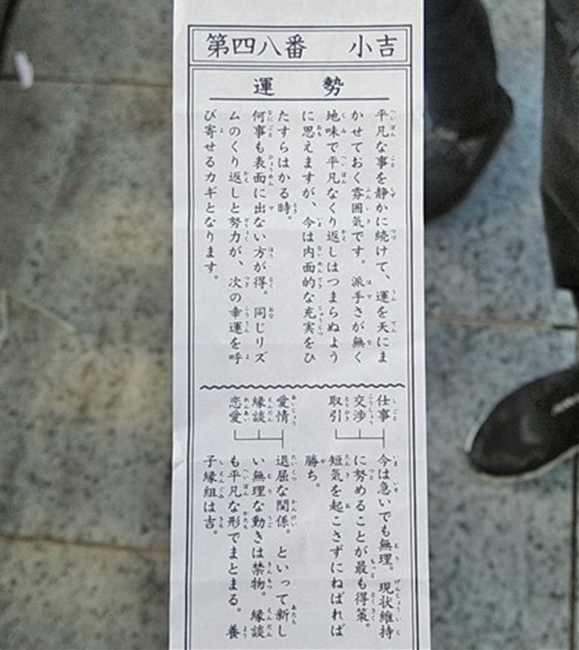 第四八番 小吉
運勢
平凡な事を静かに続けて、運を天にま
かせておく雰囲気です。派手さが無く
地味で平凡なくり返しはつまらぬよう
に思えますが、今は内面的な充実をひ
たすらはかる時。
何事も表面に出ない方が得。同じリズ
ムのくり返しと努力が、次の幸運を呼
び寄せるカギとなります。
仕事
交渉
取引
今は急いでも無理。現状維持
に努めることが最も得策。
短気を起こさずにねばれば
勝ち。
愛情
縁談
恋愛
退屈な関係。といって新し
い無理な動きは禁物。縁談
も平凡な形でまとまる。養
子縁組は吉。